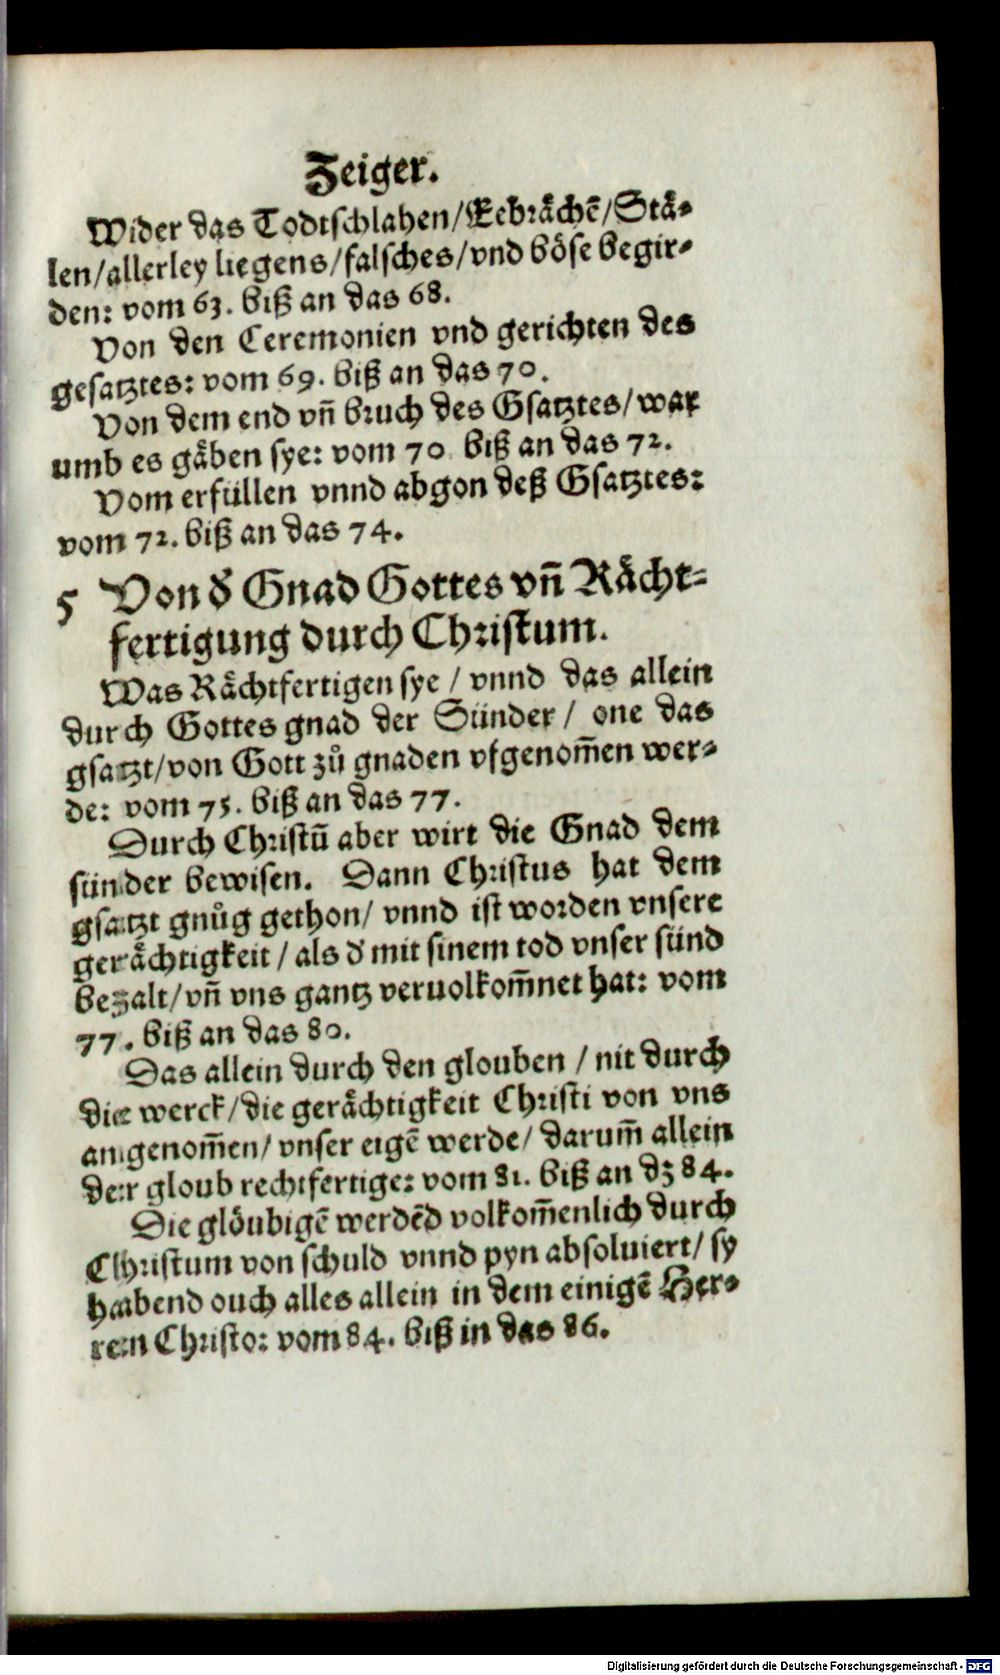 Zeiger.
Wider das Todtschlahen/Eebrächē/Stä-
len/allerley liegens/falsches/vnd böse begir-
den: vom 63. biß an das 68.
Von den Ceremonien vnd gerichten des
gesatztes: vom 69. biß an das 70.
Von dem end vñ bruch des Gsatztes/war
umb es gäben sye: vom 70 biß an das 72.
Vom erfüllen vnnd abgon deß Gsatztes:
vom 72. biß an das 74.
5 Von d' Gnad Gottes vñ Rächt-
fertigung durch Christum.
Was Rächtfertigen sye / vnnd das allein
durch Gottes gnad der Sünder / one das
gsatzt/von Gott zů gnaden vfgenom̄en wer-
de: vom 75. biß an das 77.
Durch Christū aber wirt die Gnad dem
sünder bewisen. Dann Christus hat dem
gsatzt gnůg gethon/ vnnd ist worden vnsere
gerächtigkeit / als d' mit sinem tod vnser sünd
bezalt/vñ vns gantz veruolkom̄net hat: vom
77. biß an das 80.
Das allein durch den glouben / nit durch
die werck/die gerächtigkeit Christi von vns
angenom̄en/ vnser eigē werde/ darum̄ allein
der gloub rechtfertige: vom 81. biß an dz 84.
Die glöubigē werdēd volkom̄enlich durch
Christum von schuld vnnd pyn absoluiert/ sy
habend ouch alles allein in dem einigē Her-
ren Christo: vom 84. biß in das 86.
Digitalisierung gefördert durch die Deutsche Forschungsgemeinschaft - DFG